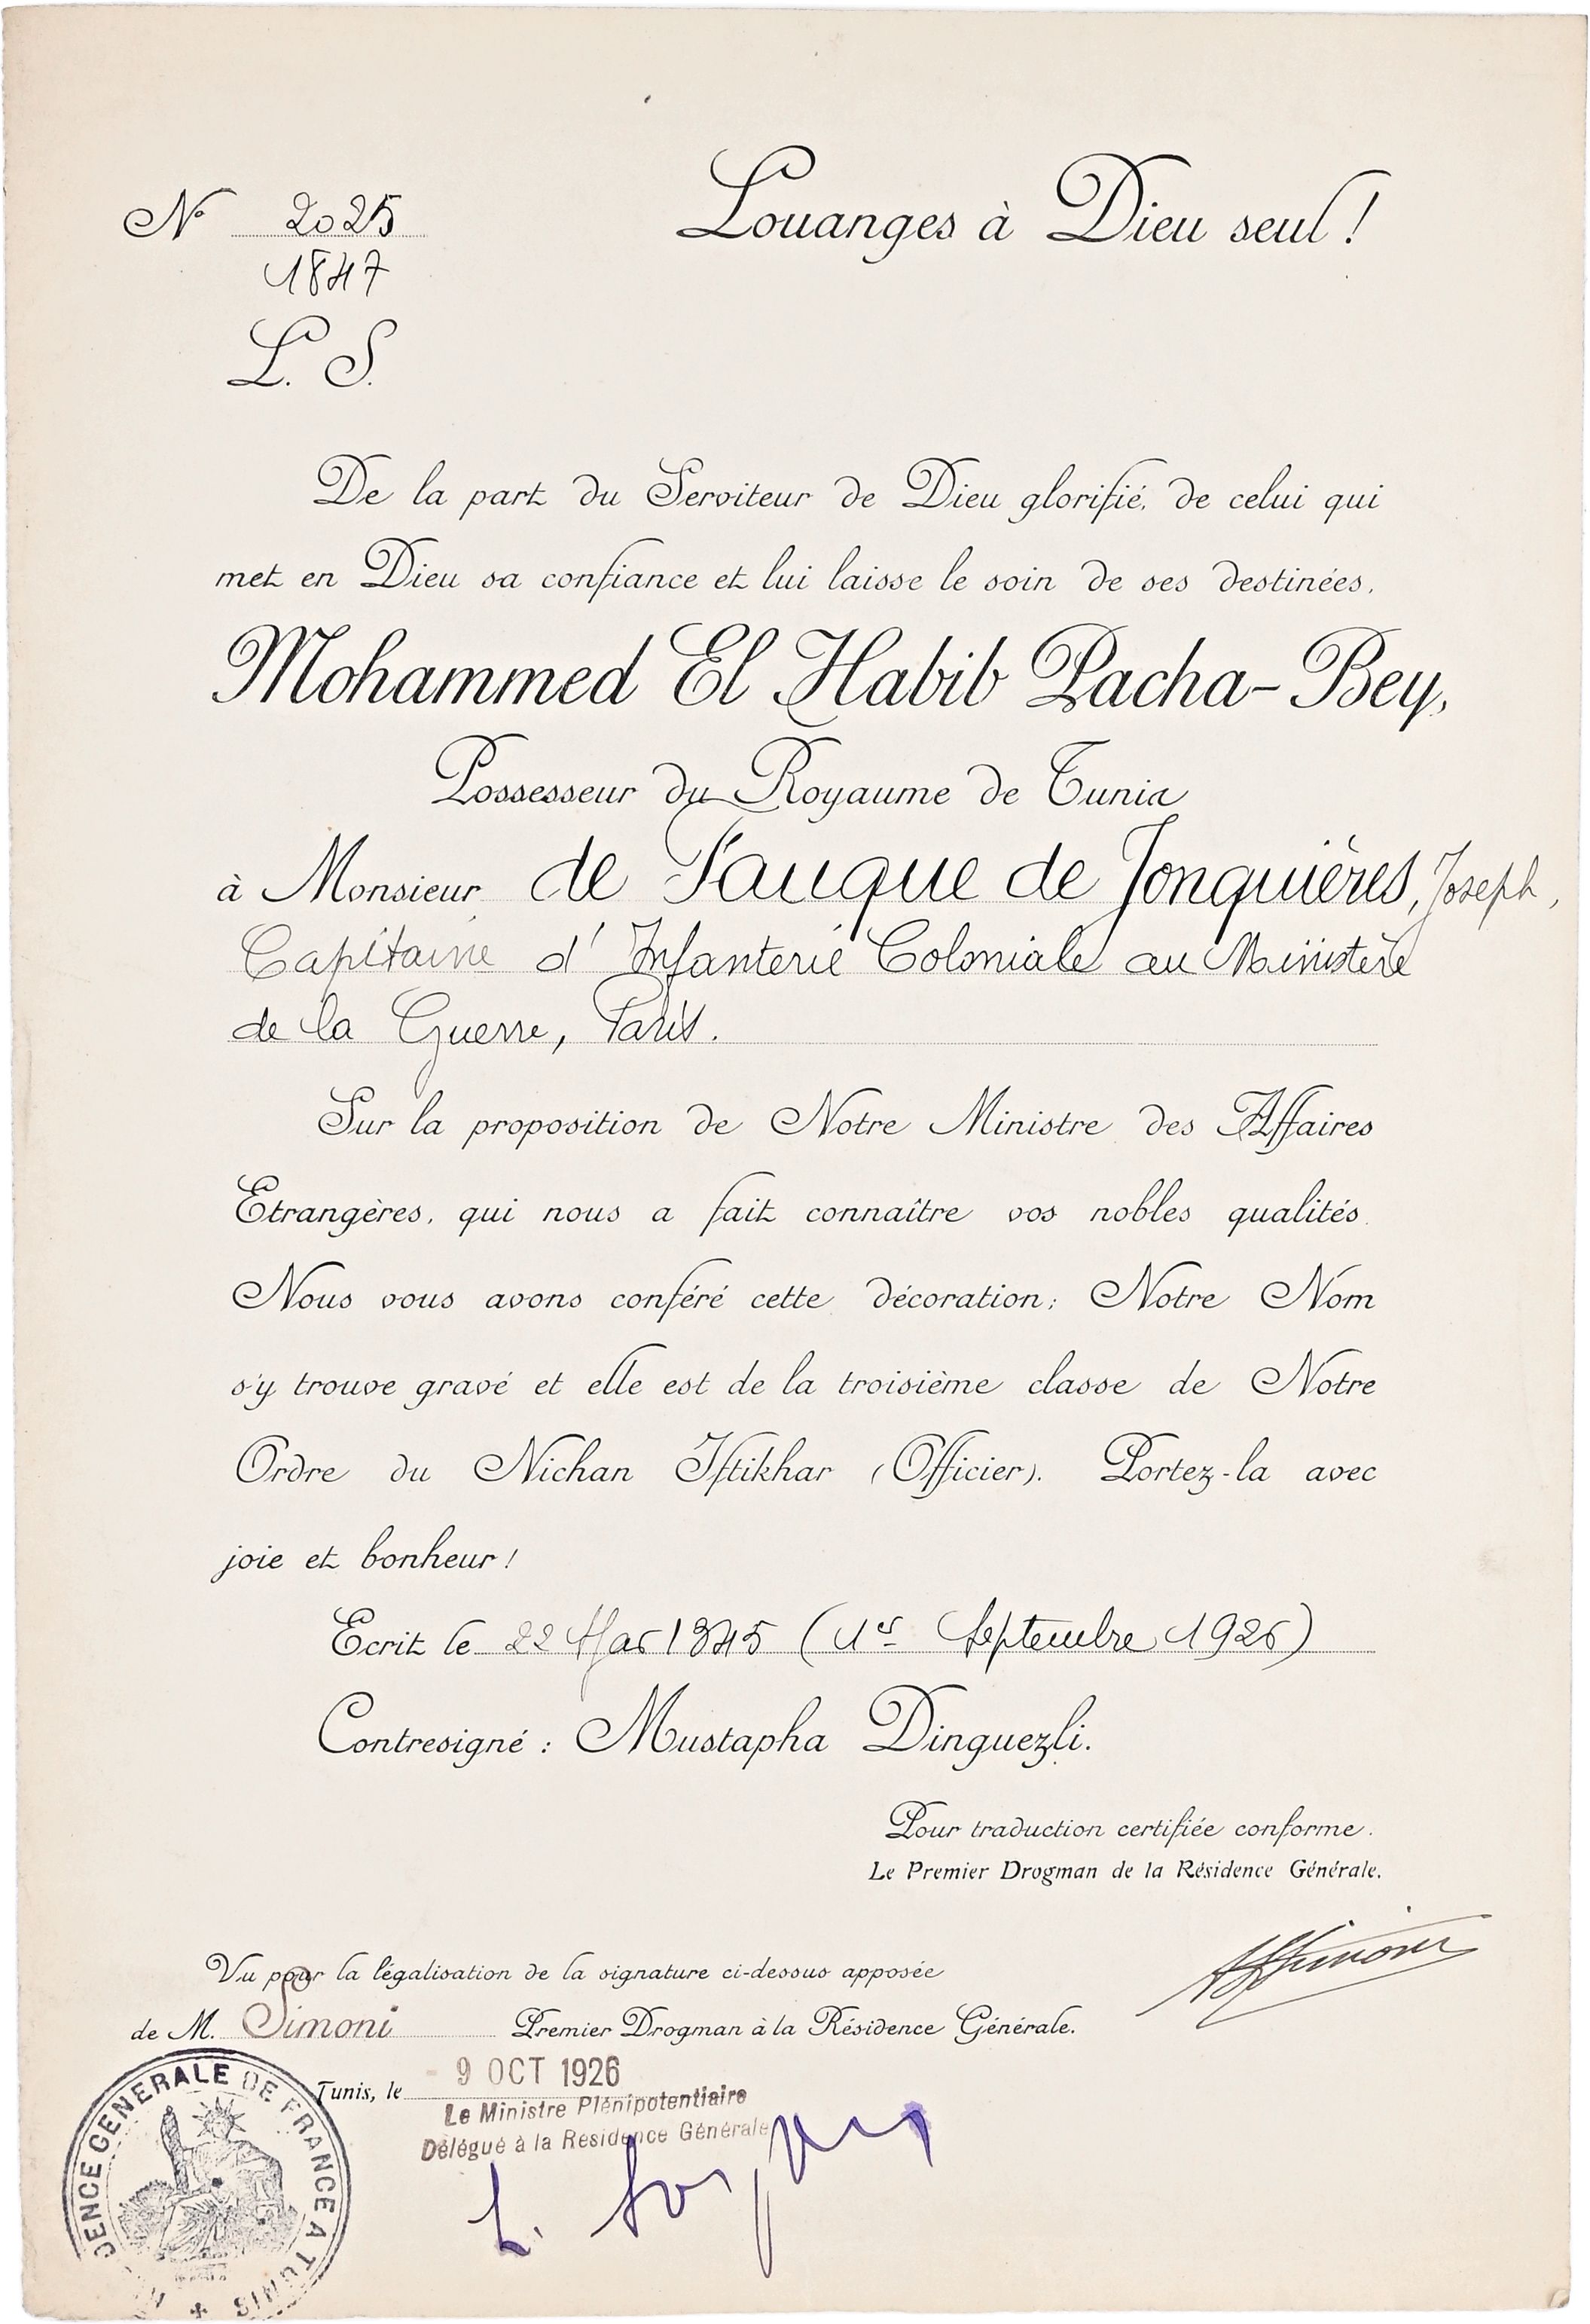 Louanges à Dieu seul !
Nº 2025
1847
L. S.
De la part du Serviteur de Dieu glorifié, de celui qui
met en Dieu sa confiance et lui laisse le soin de ses destinées,
Mohammed El Habib Pacha-Bey,
Possesseur du Royaume de Tunis
à Monsieur de Fauque de Jonquières, Joseph,
Capitaine d'Infanterie Coloniale au Ministère
de la Guerre, Paris.
Sur la proposition de Notre Ministre des Affaires
Etrangères, qui nous a fait connaître vos nobles qualités,
Nous vous avons conféré cette décoration; Notre Nom
s'y trouve gravé et elle est de la troisième classe de Notre
Ordre du Nichan Iftikhar (Officier). Portez-la avec
joie et bonheur !
Ecrit le 22 1345 (1er Septembre 1926)
Contresigné : Mustapha Dinguezli.
Pour traduction certifiée conforme.
Le Premier Drogman de la Résidence Générale.
Vu pour la légalisation de la signature ci-dessus apposée
de M. Simoni Premier Drogman à la Résidence Générale.
Tunis, le 9 OCT 1926
Le Ministre Plénipotentiaire
Délégué à la Résidence Générale
DENCE GENERALE DE FRANCE A TUNIS